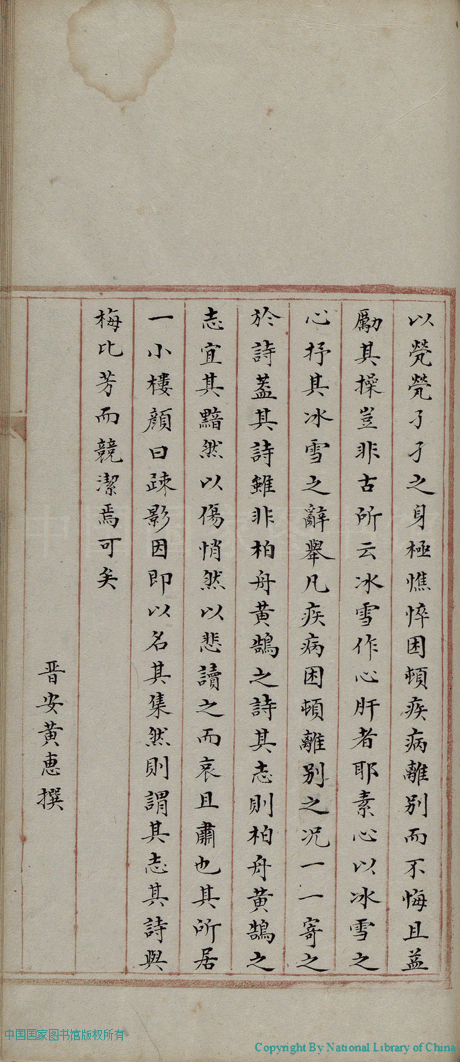 以煢煢孑孑之身極憔悴困頓疾病離别而不悔且益
勵其操豈非古所云冰雪作心肝者耶素心以冰雪之
心抒其冰雪之辭舉凡疾病困頓離别之况一一寄之
於詩葢其詩雖非柏舟黄鵠之詩其志則柏舟黄鵠之
志宜其黯然以傷悄然以悲讀之而哀且肅也其所居
一小樓顔曰疎影因即以名其集然則謂其志其詩與
梅比芳而競潔焉可矣
晋安黄惠撰
中国国家图书馆版权所有
Copyright By National Library of China